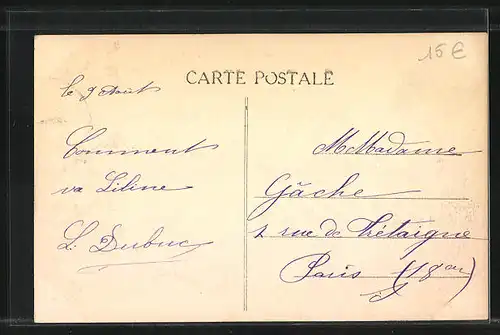 15 €
CARTE POSTALE
le 9 Aout
Comment
va Liline
L. Dubuc
M Madame
Gâche
1 rue de Trétaigne
Paris (18